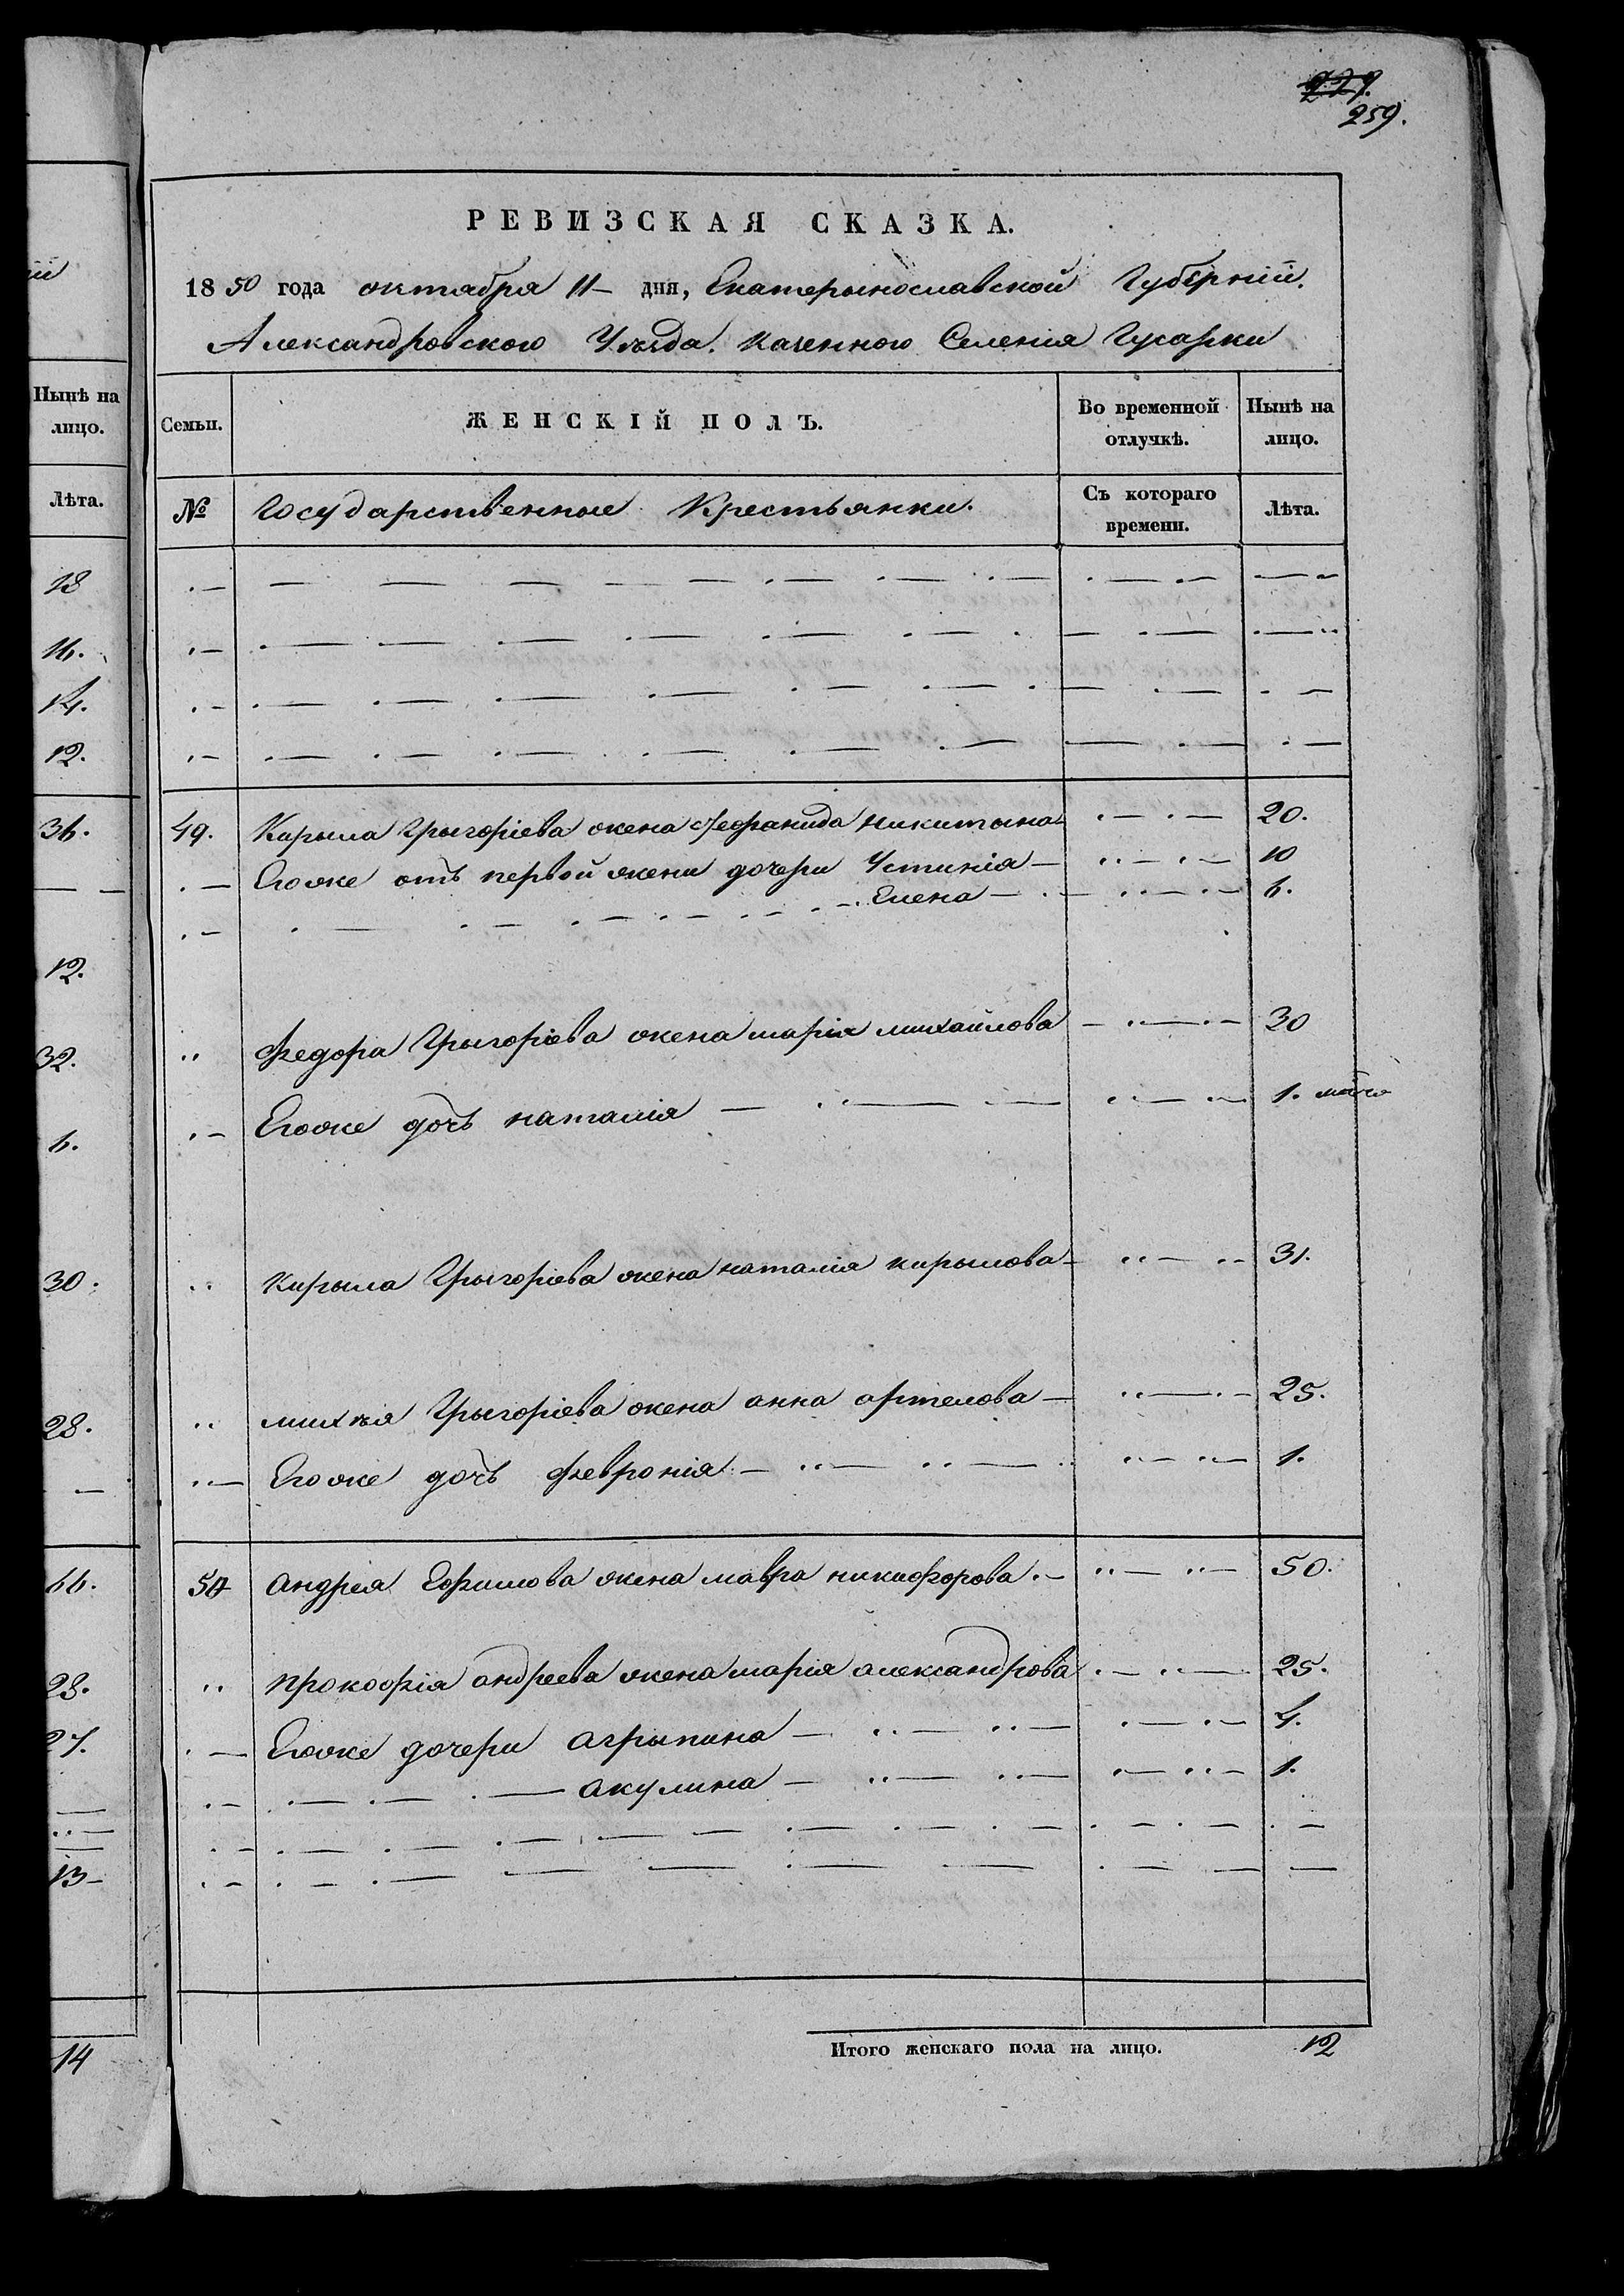 229.
259.
РЕВИЗСКАЯ СКАЗКА.
1850 года октабря 11 дня, Екатерынославской Губернiи.
Александровского Уезда. казенного Селенiя Гусарки
Нынѣ на лицо.
Семьи.
ЖЕНСКІЙ ПОЛЪ.
Во временной отлучкѣ.
Нынѣ на лицо.
Лѣта.
№
Государственные Крестьянки.
Съ котораго времени.
Лѣта.
18
16.
14.
12.
36. 49. Кирыла Грыгоріева жена Феофанида никитына 20.
Егоже отъ первой жены дочери Устинія 10
Елена 6.
12.
32. Федора Грыгоріева жена марія михайлова 30
6. Егоже дочъ наталія 1.
30. Кирыла Грыгоріева жена наталія кирылова 31.
28. михея Грыгоріева жена анна артемова 25.
Егоже дочъ февронія 1.
66. 50 андрея Ефимова жена мавра никифорова 50.
28. прокофія андреева жена марія александрова 25.
27. Егоже дочери агрыпина 4.
акулина 1.
13
Итого женскаго пола на лицо. 12
14